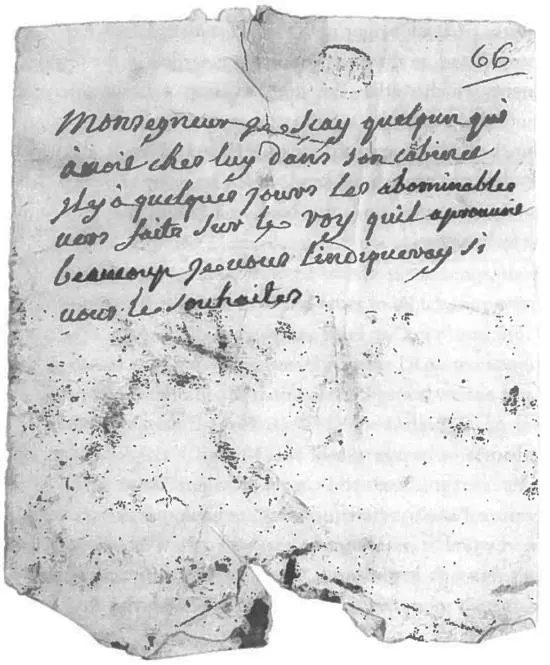 66
Monsegneur je scay quelqun qui
avoit ches luy dans son cabinet
il y à quelques jours les abominables
vers faits sur le roy quil aprouvoit
beaucoup je vous lindiqueray si
vous le souhaites